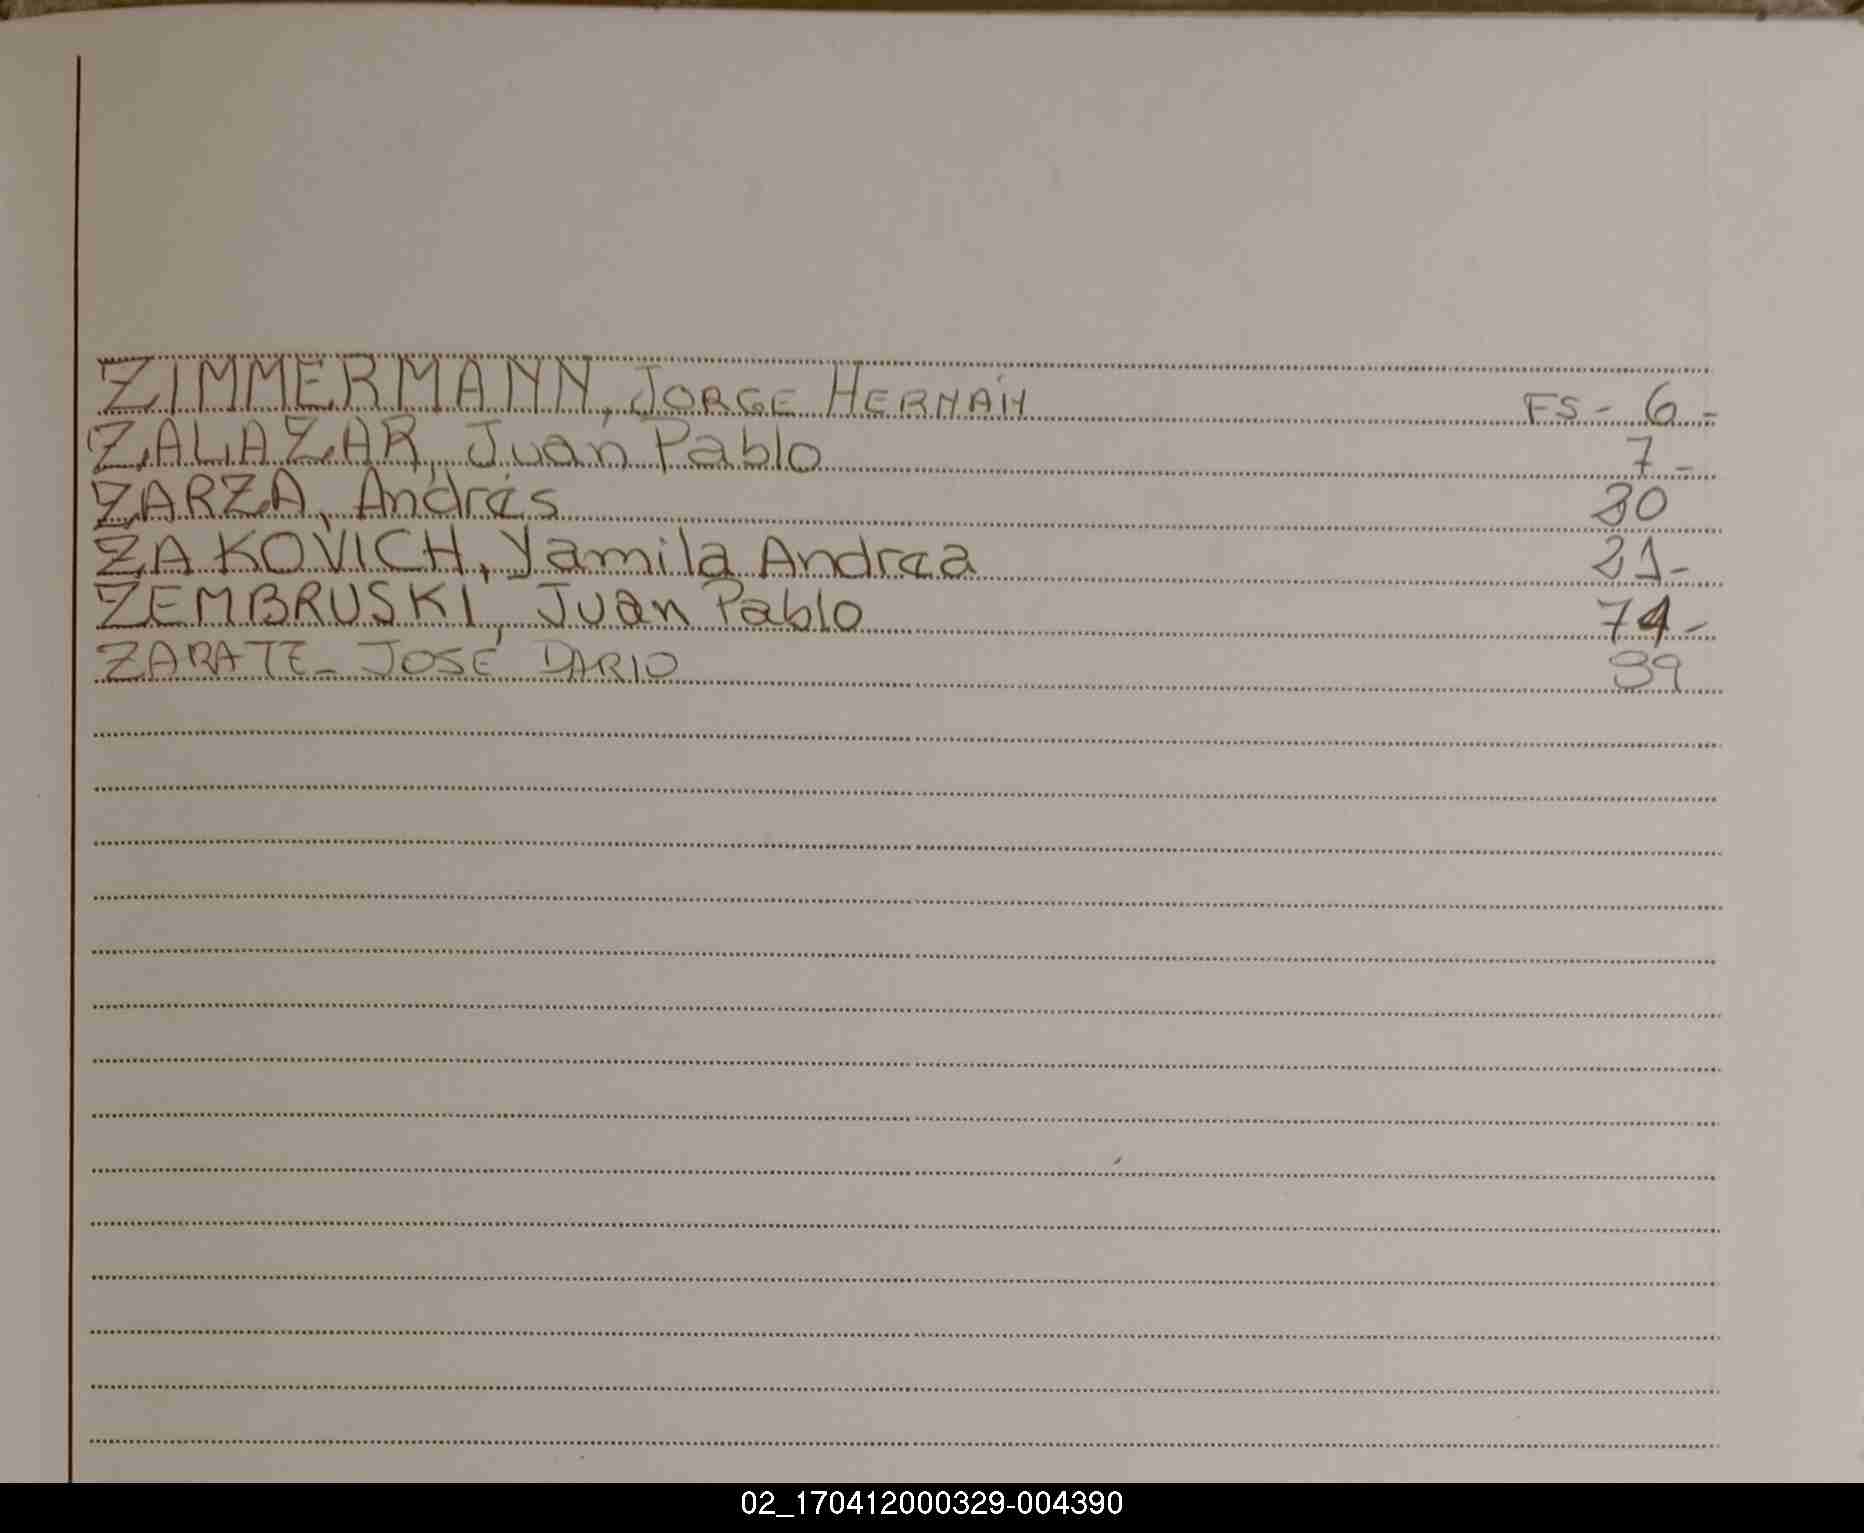 ZIMMERMANN, JORGE HERNÁN FS - 6 -
ZALAZAR, Juan Pablo 7 -
ZARZA, Andrés 20
ZAKOVICH, Yamila Andrea 21 -
ZEMBRUSKI, Juan Pablo 74 -
ZARATE - JOSÉ DARIO 99
02_170412000329-004390